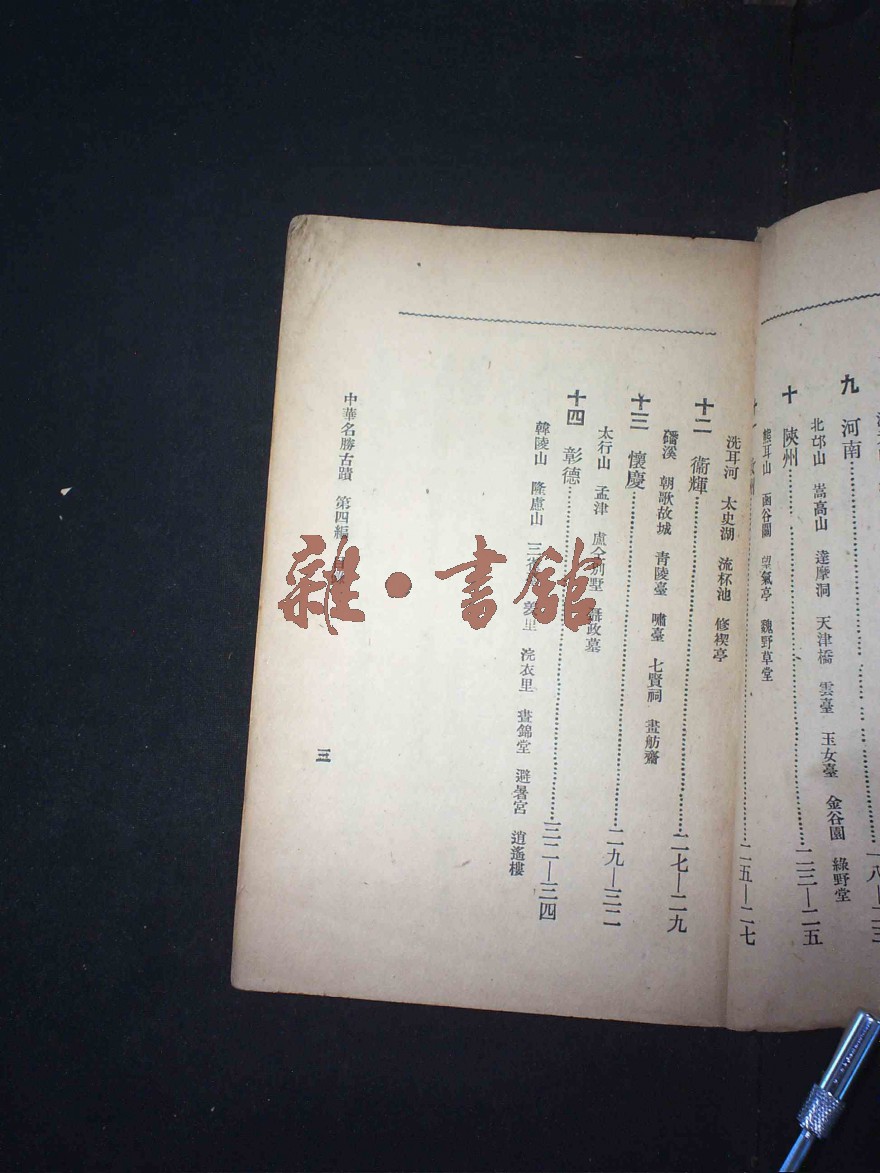 九 河南 一八—二三
北邙山 嵩高山 達摩洞 天津橋 雲臺 玉女臺 金谷園 綠野堂
十 陝州 二三—二五
熊耳山 函谷關 望氣亭 魏野草堂
十一 州 二五—二七
洗耳河 太史湖 流杯池 修禊亭
十二 衞輝 二七—二九
磻溪 朝歌故城 青陵臺 嘯臺 七賢祠 畫舫齋
十三 懷慶 二九—三二
太行山 孟津 盧仝別墅 聶政墓
十四 彰德 三二—三四
韓陵山 隆慮山 三 羑里 浣衣里 晝錦堂 避暑宮 逍遙樓
中華名勝古蹟 第四編 目
三
雜·書館